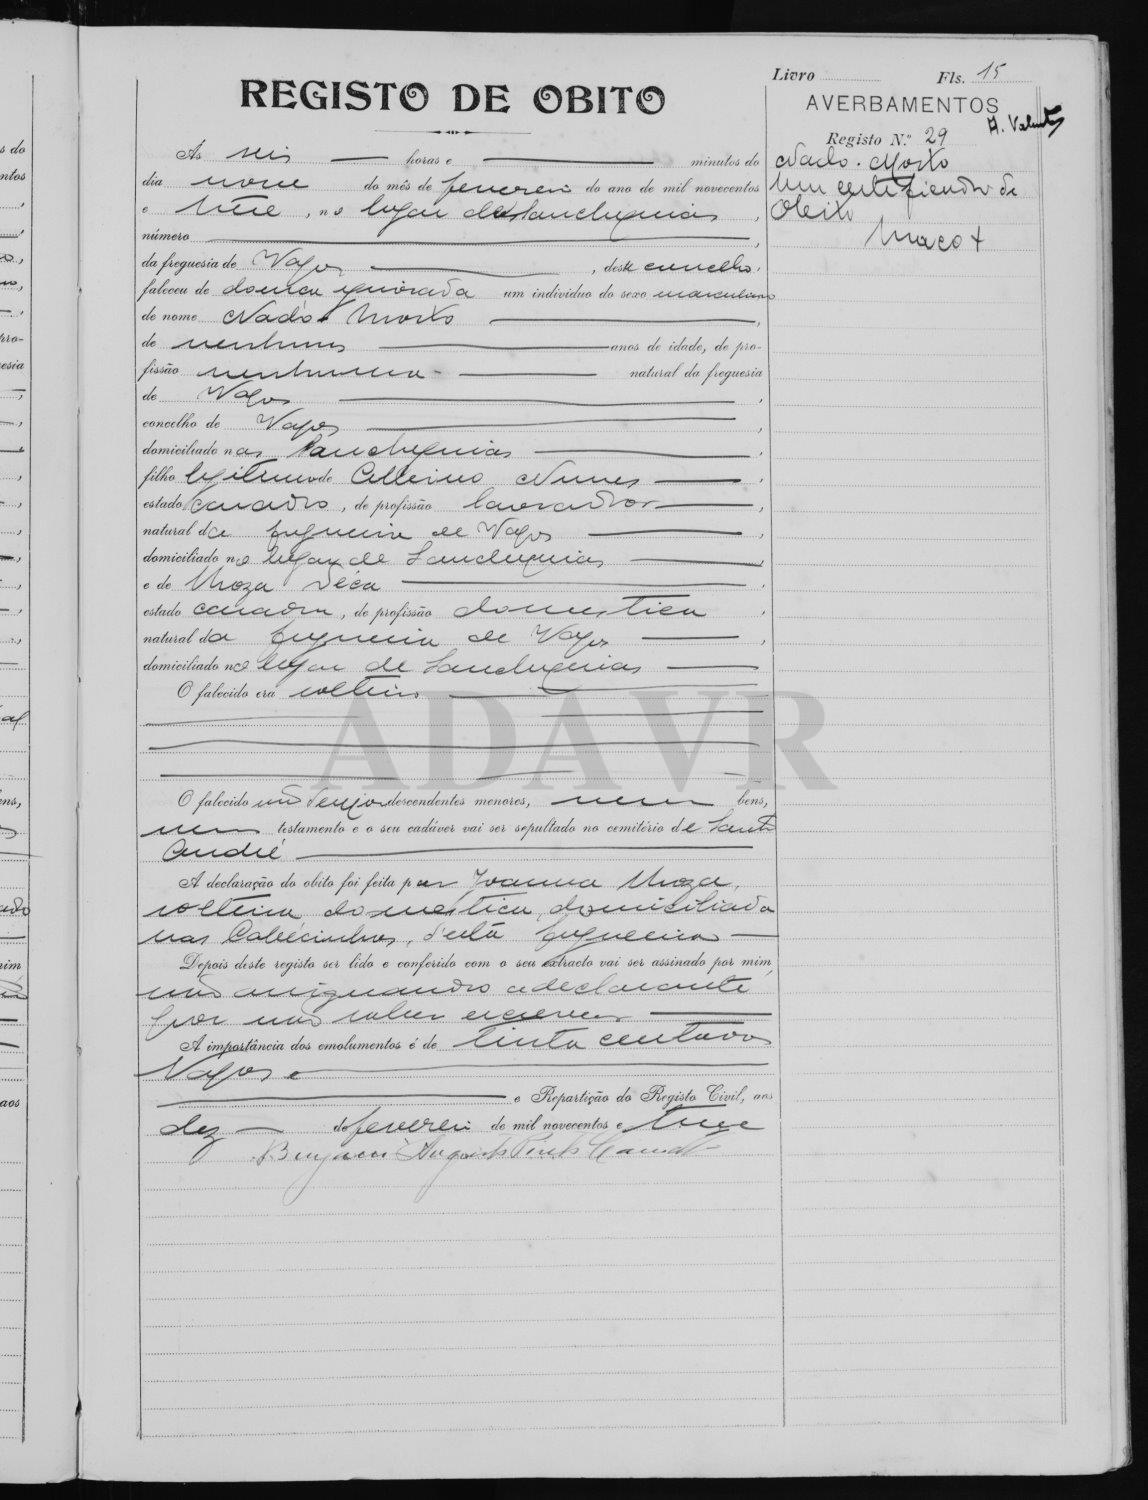 Livro Fls. 15
REGISTO DE OBITO
AVERBAMENTOS
Registo N.º 29
Nado-Morto
Um certificado de
Obito
Maço
Às seis horas e minutos do
dia nove do mês de fevereiro do ano de mil novecentos
e treze, no lugar
número
da freguesia de Vagos, deste concelho,
faleceu de doença ignorada um individuo do sexo masculino
de nome Nado Morto
de nenhuns anos de idade, de pro-
fissão nenhuma natural da freguesia
de Vagos,
concelho de Vagos,
domiciliado nas
filho legitimo de Nunes
estado casado, de profissão lavrador
natural da freguesia de Vagos,
domiciliado no lugar de
e de Roza
estado casada, de profissão domestica,
natural da freguesia de Vagos,
domiciliado no lugar de
O falecido era solteiro
ADAVR
O falecido não deixou descendentes menores, nem bens,
nem testamento e o seu cadáver vai ser sepultado no cemitério de Santo
André
A declaração do obito foi feita por Joanna Roza,
solteira domestica, domiciliada
nas d'esta freguesia
Depois deste registo ser lido e conferido com o seu extracto vai ser assinado por mim
não assignando a declarante
por não saber escrever
A importância dos emolumentos é de trinta centavos
Vagos e
e Repartição do Registo Civil, aos
dez de fevereiro de mil novecentos e treze
Augusto